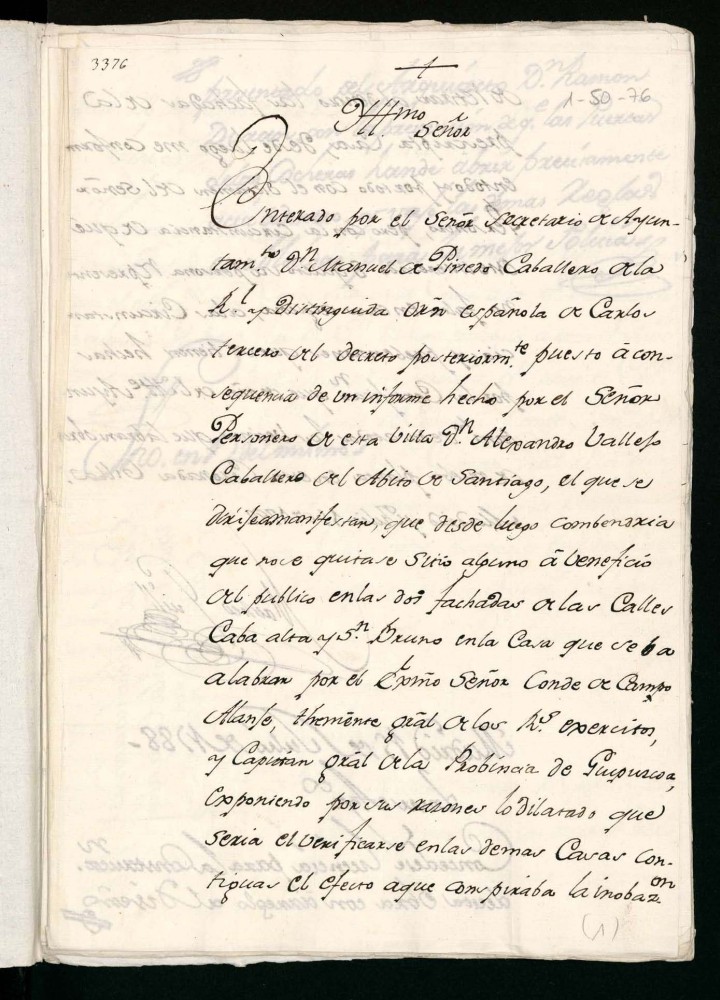 3376
1-50-76
Yllmo Señor
Enterado por el Señor Secretario de Ayun-
tam.to D.n Manuel de Pinedo Caballero de la
R.l y Distinguida Orñ española de Carlos
tercero del decreto posteriorm.te puesto á con-
sequencia de un informe hecho por el Señor
Personero de esta Villa D.n Alexandro Vallejo
Caballero del Abito de Santiago, el que se
dirije amanifestar, que desde luego combendria
que no se quitase Sitio alguno á beneficio
del publico en las dos fachadas de las Calles
Caba alta y S.n Bruno en la Casa que se ba
a labrar por el Exmo Señor Conde de Campo
Alanje, theniente grãl de los R.s exercitos,
y Capitan grãl de la Probincia de Guipuzcoa,
exponiendo por sus razones lo dilatado que
seria el berificarse en las demas Casas con-
tiguas el efecto a que conspiraba la inobaz.on
(1)